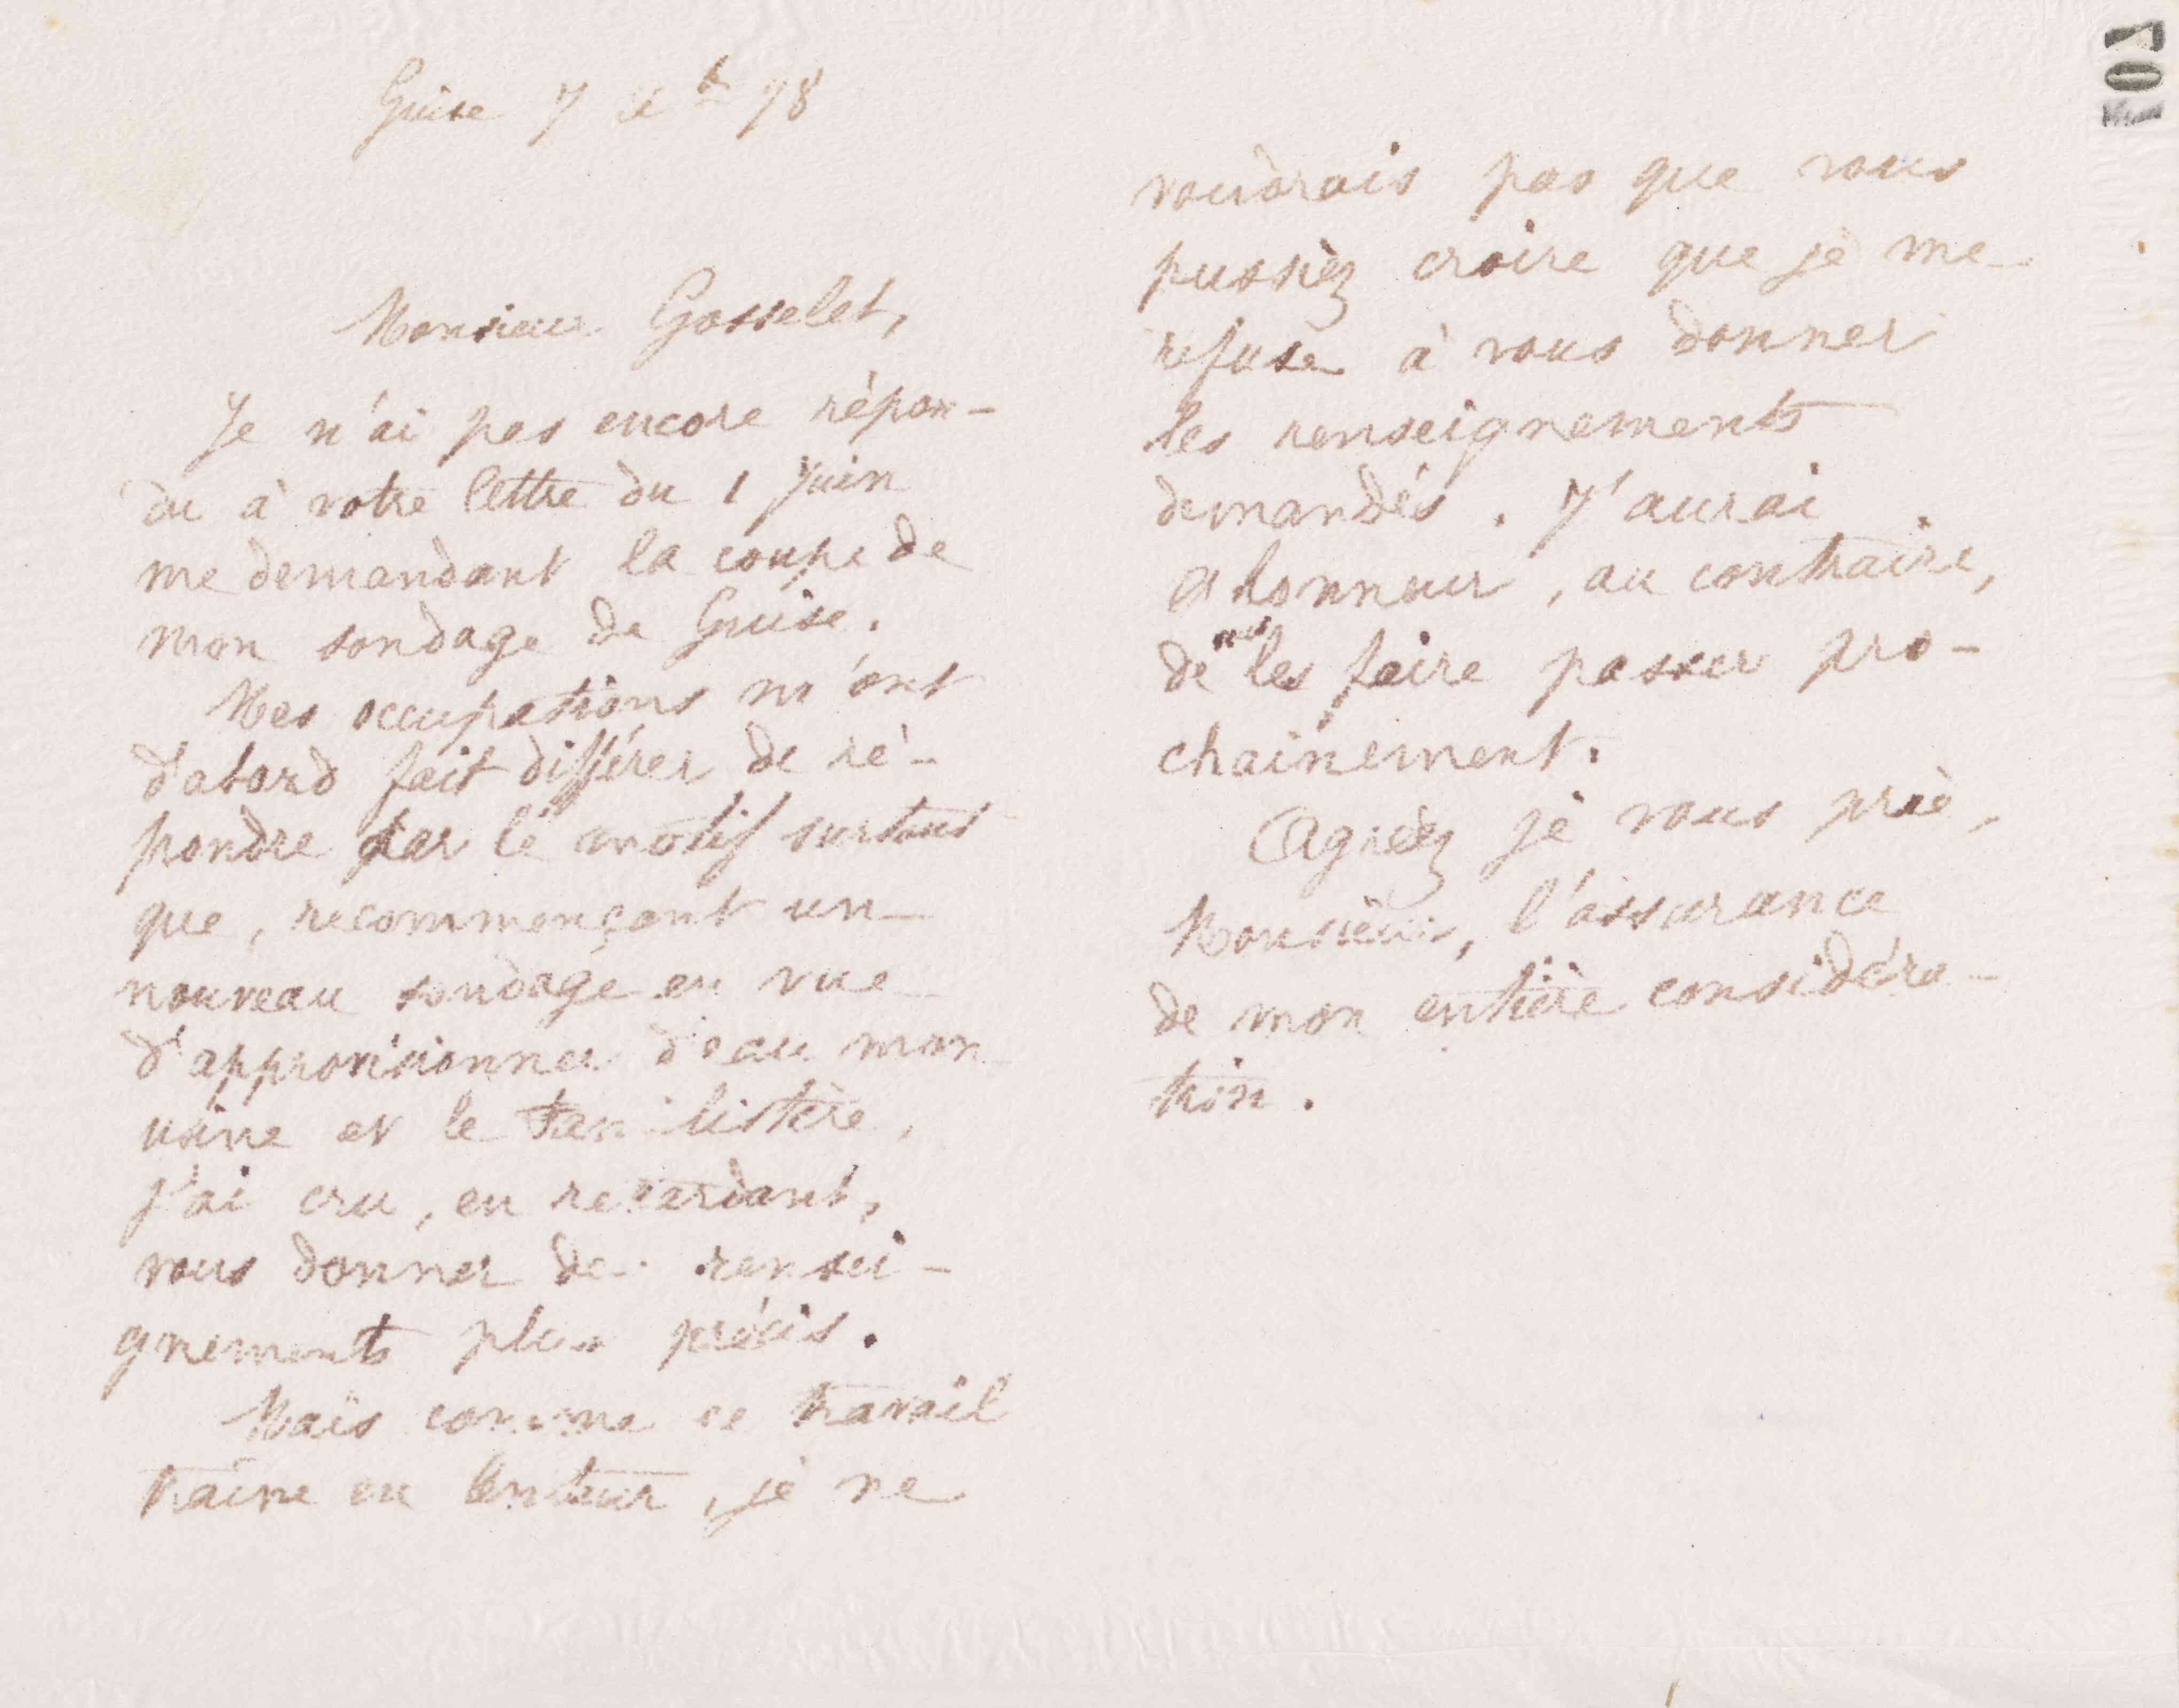 Guise 7 Xbre 78
Monsieur Gosselet,
Je n'ai pas encore répon-
du à votre lettre du 1 Juin
me demandant la coupe de
mon sondage de Guise.
Mes occupations m'ont
d'abord fait différer de ré-
pondre par le motif surtout
que, recommençant un
nouveau sondage en vue
d'approvisionner d'eau mon
usine et le familistère,
j'ai cru, en retardant,
vous donner des rensei-
gnements plus précis.
Mais comme ce travail
traîne en lenteur, je ne
voudrais pas que vous
pussiez croire que je me
refuse à vous donner
les renseignements
demandés. J'aurai
à honneur, au contraire,
de vous les faire passer pro-
chainement.
Agréez je vous prie,
Monsieur, l'assurance
de mon entière considéra-
tion.